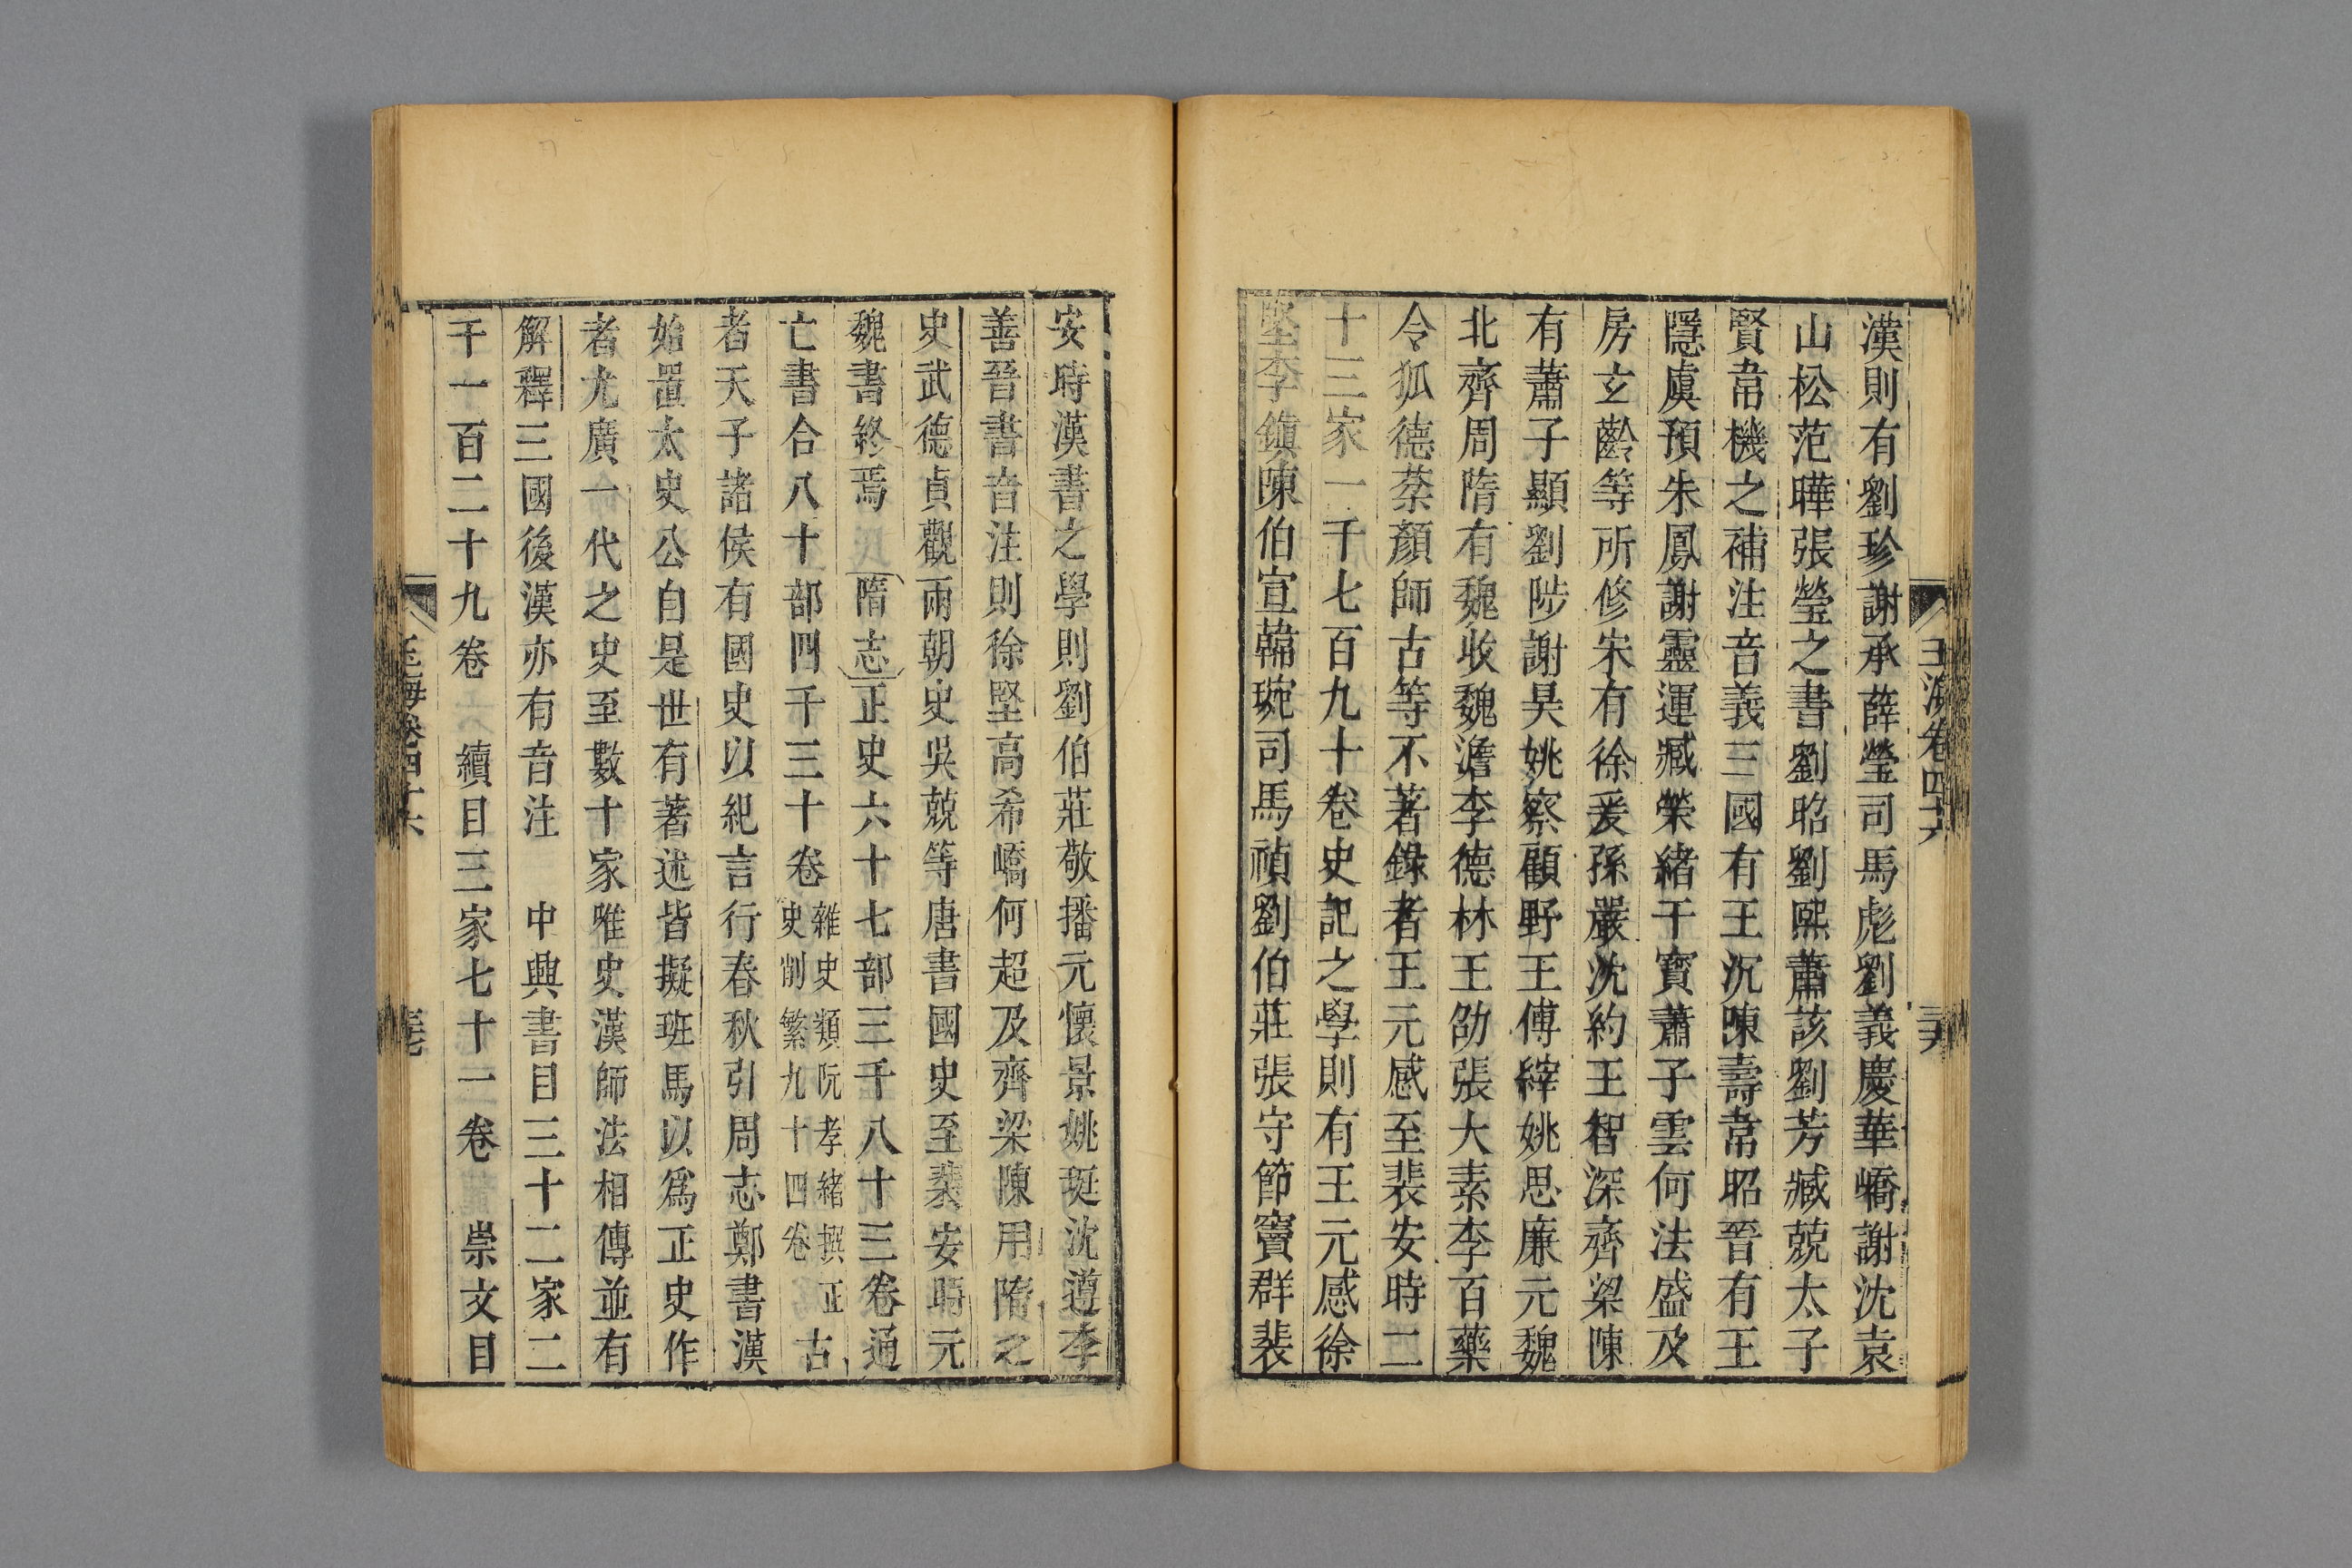 漢則有劉珍謝承薛瑩司馬彪劉義慶華嶠謝沈袁
山松范曄張瑩之書劉昭劉熙蕭該劉芳臧兢太子
賢韋機之補注音義三國有王沉陳壽韋昭晉有王
隱虞預朱鳳謝靈運臧榮緒干寶蕭子雲何法盛及
房玄齡等所修宋有徐爰孫嚴沈約王智深齊梁陳
有蕭子顯劉陟謝昊姚察顧野王傅縡姚思廉元魏
北齊周隋有魏收魏澹李德林王劭張大素李百藥
令狐德棻顏師古等不著錄者王元感至裴安時二
十三家一千七百九十卷史記之學則有王元感徐
堅李鎮陳伯宣韓琬司馬禎劉伯莊張守節竇群裴
安時漢書之學則劉伯莊敬播元懷景姚珽沈遵李
善晉書音注則徐堅高希嶠何超及齊梁陳用隋之
史武德貞觀兩朝史吳兢等唐書國史至裴安時元
魏書終焉 隋志正史六十七部三千八十三卷通
亡書合八十部四千三十卷雜史類阮孝緒撰正史削繁九十四卷古
者天子諸侯有國史以紀言行春秋引周志鄭書漢
始置太史公自是世有著述皆擬班馬以爲正史作
者尤廣一代之史至數十家唯史漢師法相傳並有
解釋三國後漢亦有音注 中興書目三十二家二
千一百二十九卷 續目三家七十二卷 崇文目
玉海卷四十六